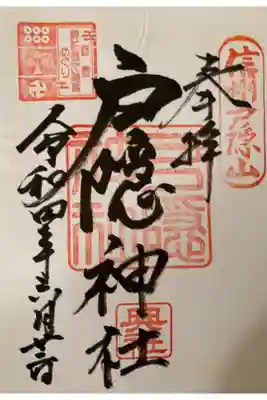 奉拝
信州戸隠山
戸隠神社
奥社
令和四年六月廿二日